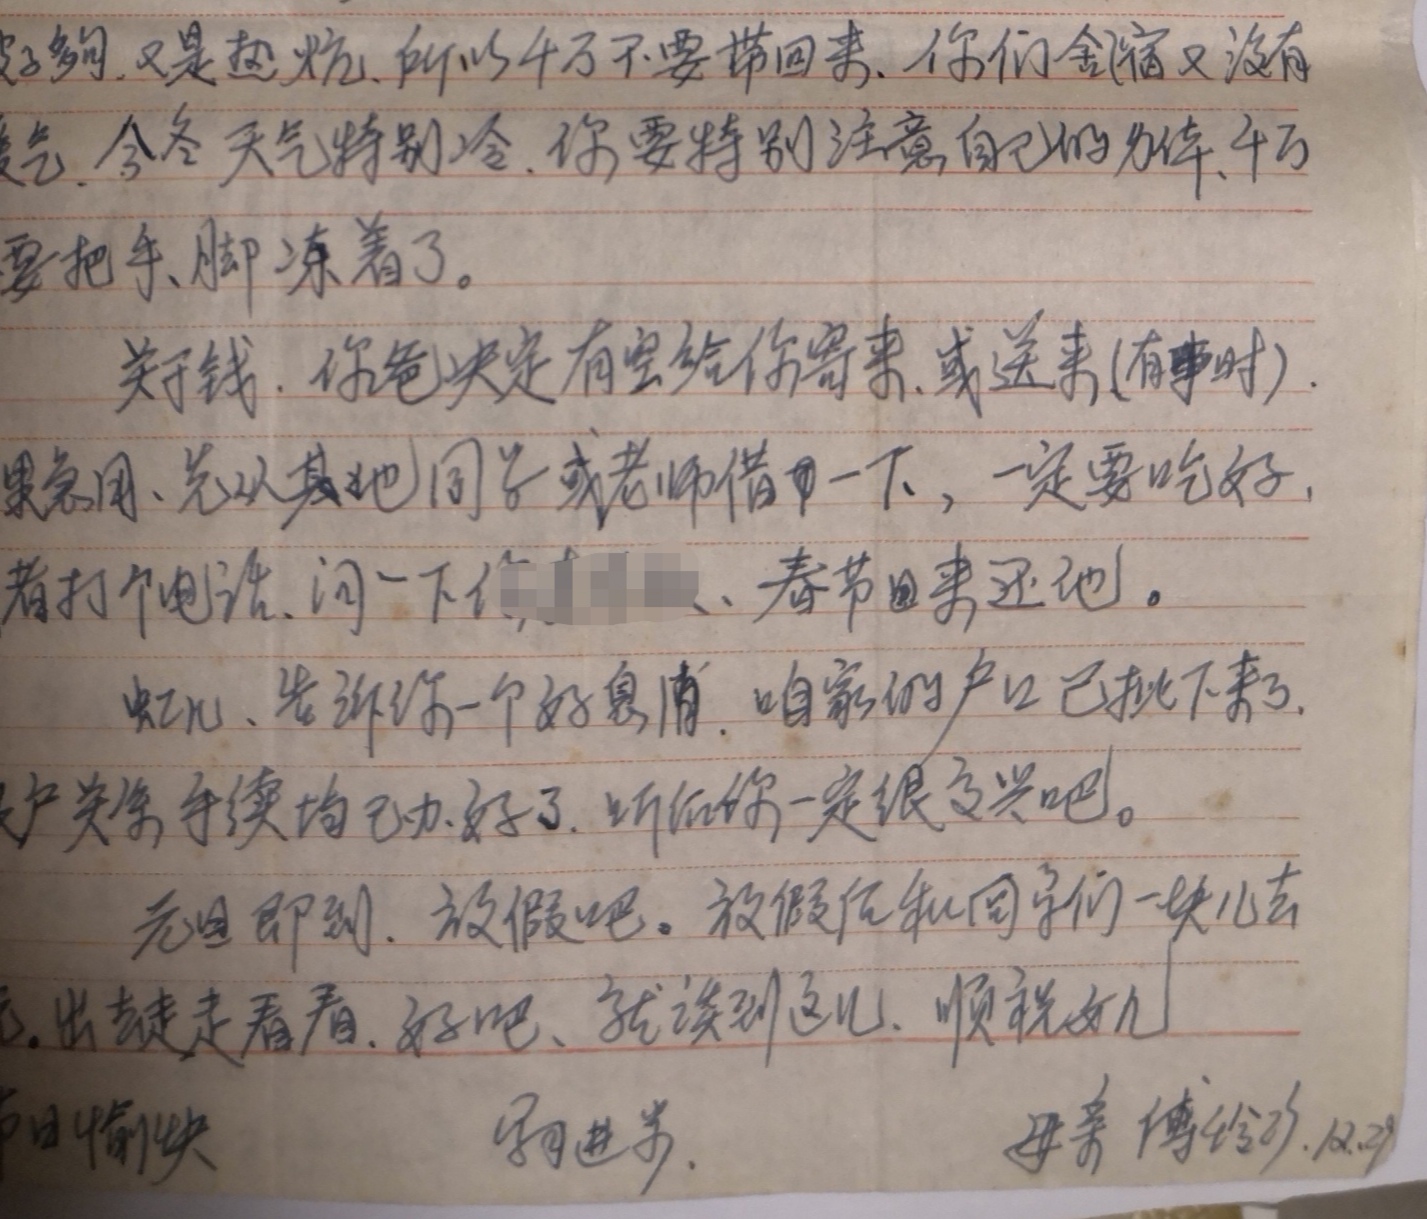 够.又是热炕、所以千万不要带回来、你们宿又没有
气.今冬天气特别冷.你要特别注意自己的身体、千万
要把手、脚冻着了。
关于钱.你爸决定有空给你寄来、或送来(有事时).
果急用、先从其他同学或老师借一下,一定要吃好,
者打个电话、问一下你、春节回来还他。
虹儿、告诉你一个好息消.咱家的户口已批下来了.
户关系手续均已办好了.听后你一定很高兴吧。
元旦即到.放假吧。放假后和同学们一块儿去
.出去走走看看.好吧、就谈到这儿.顺祝女儿
节日愉快 学习进步. 母亲 傅 12.29